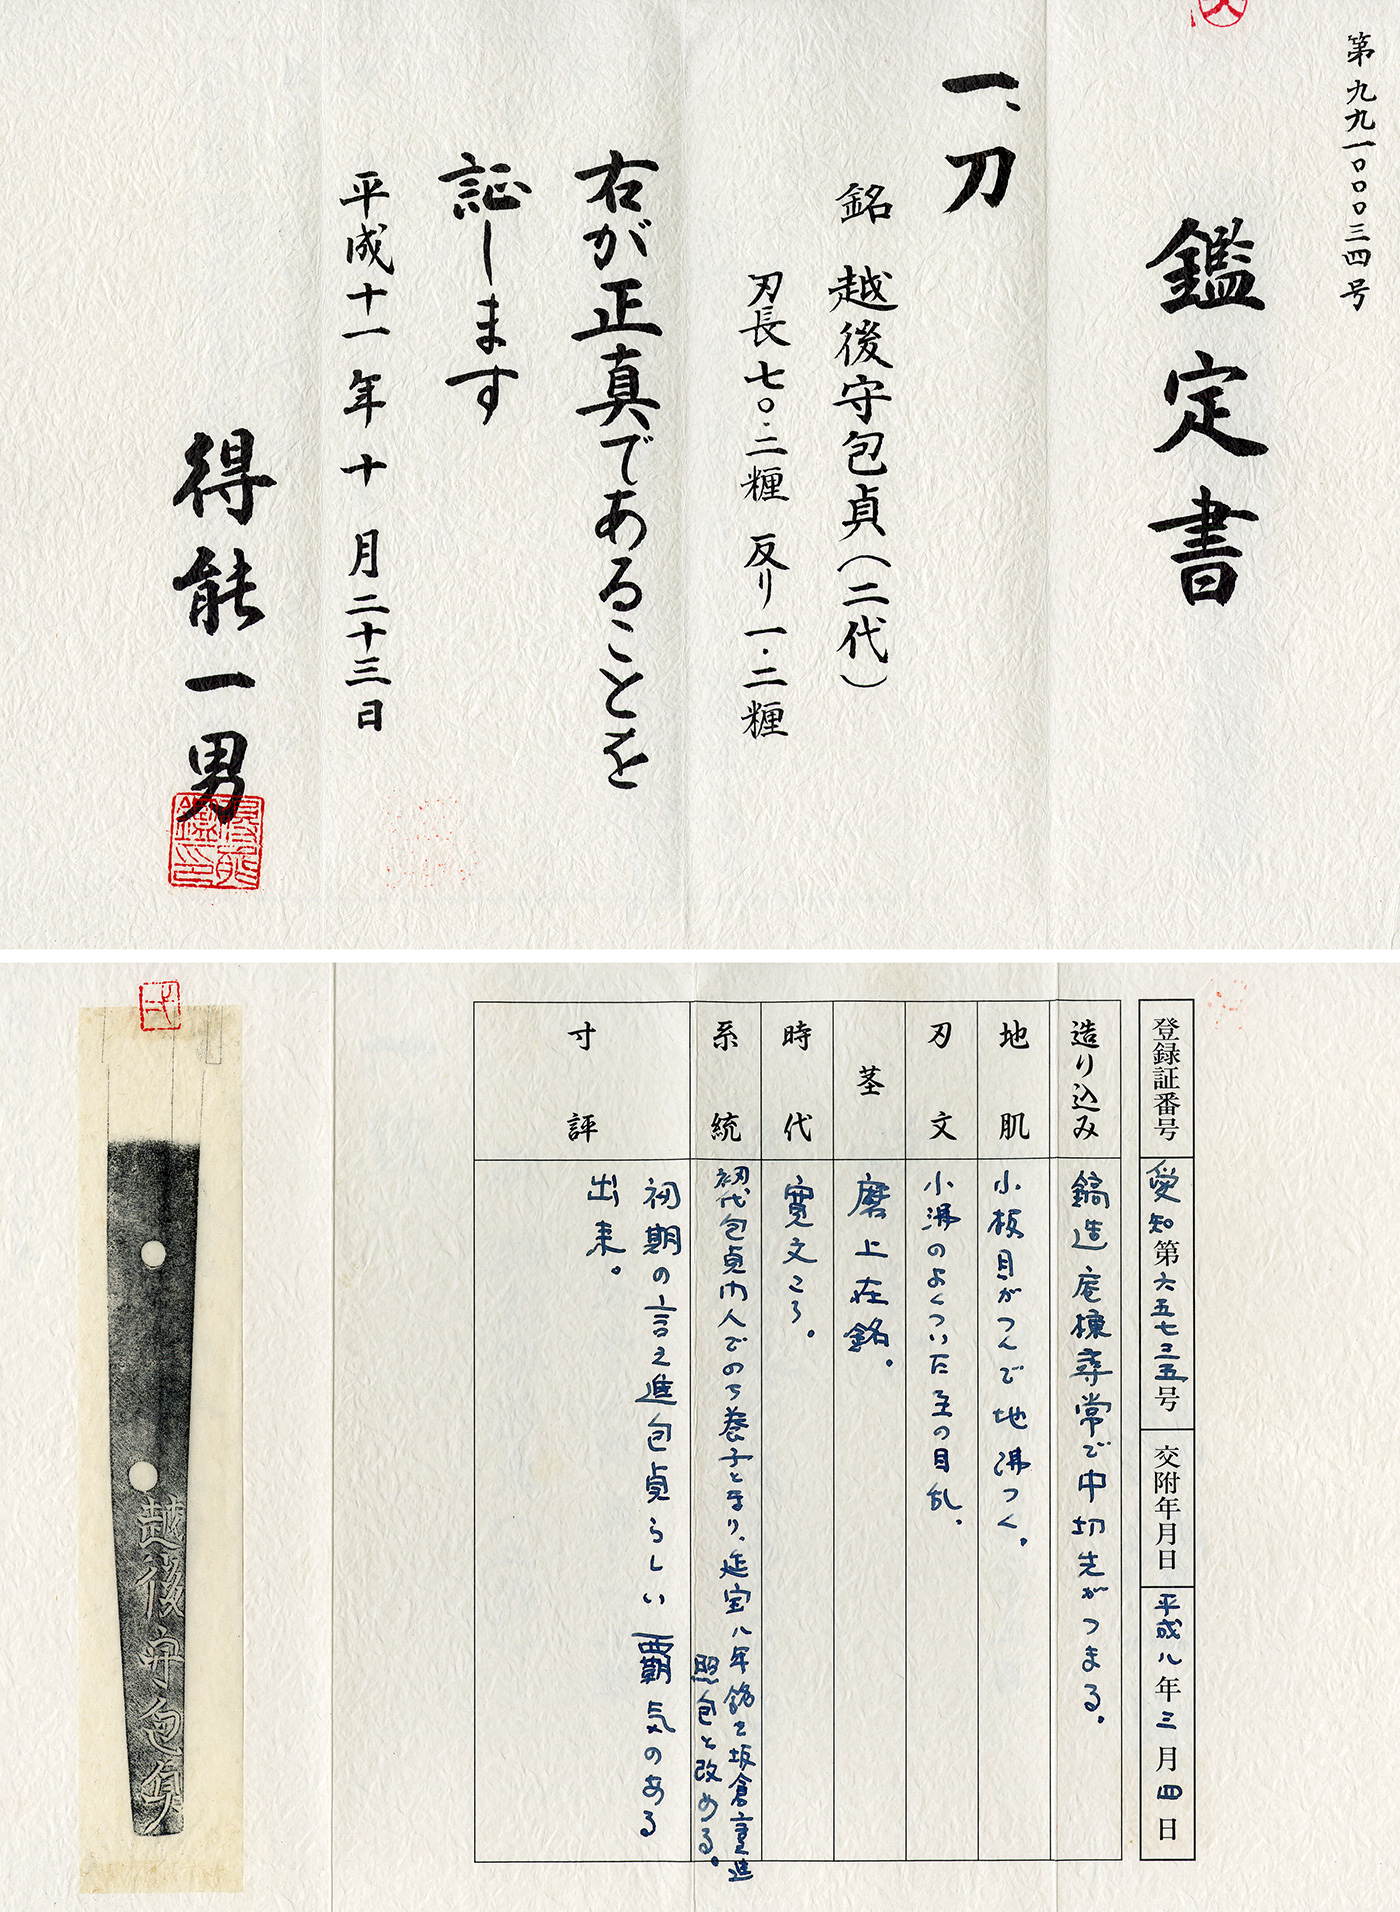 第九九一〇〇〇三四号
鑑定書
一、刀
銘 越後守包貞(二代)
刃長七〇・二糎 反り一・二糎
右が正真であることを
証します
平成十一年十月二十三日
得能一男
登録証番号 愛知第六五七三五号 交附年月日 平成八年三月四日
造り込み 鎬造庵棟尋常で中切先がつまる。
地肌 小板目がつんで地沸つく。
刃文 小沸のよくついた互の目乱。
茎 磨上在銘。
時代 寛文ころ。
系統 初代包貞門人でのち養子となり、延宝八年銘を坂倉言之進
照包と改める。
寸評 初期の言之進包貞らしい覇気のある
出来。
越後守包貞